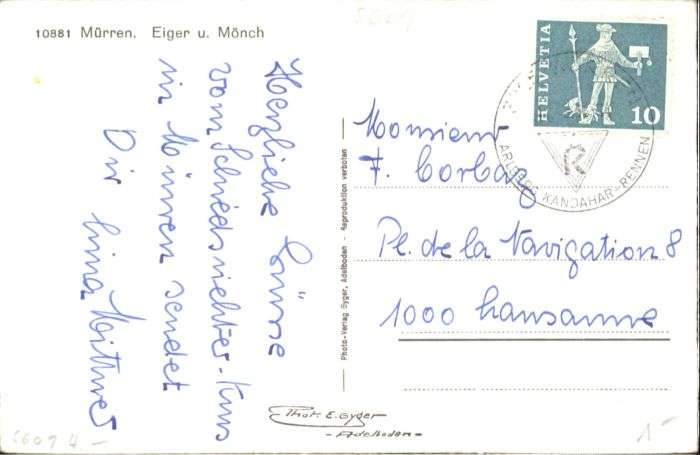 10881 Mürren. Eiger u. Mönch
Herzliche Grüsse
vom Schiedsrichter-Kurs
in Mürren sendet
Dir
Photo-Verlag Gyger, Adelboden - Reproduktion verboten
Phot. E. Gyger
- Adelboden -
HELVETIA
10
ARLBERG KANDAHAR-RENNEN
Monsieur
F. Corbaz
Pl. de la Navigation 8
1000 Lausanne